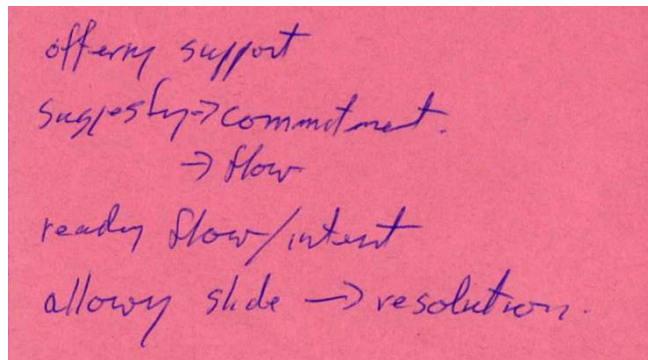 offering support
suggesting → commitment.
→ flow
reading flow/intent
allowing slide → resolution.